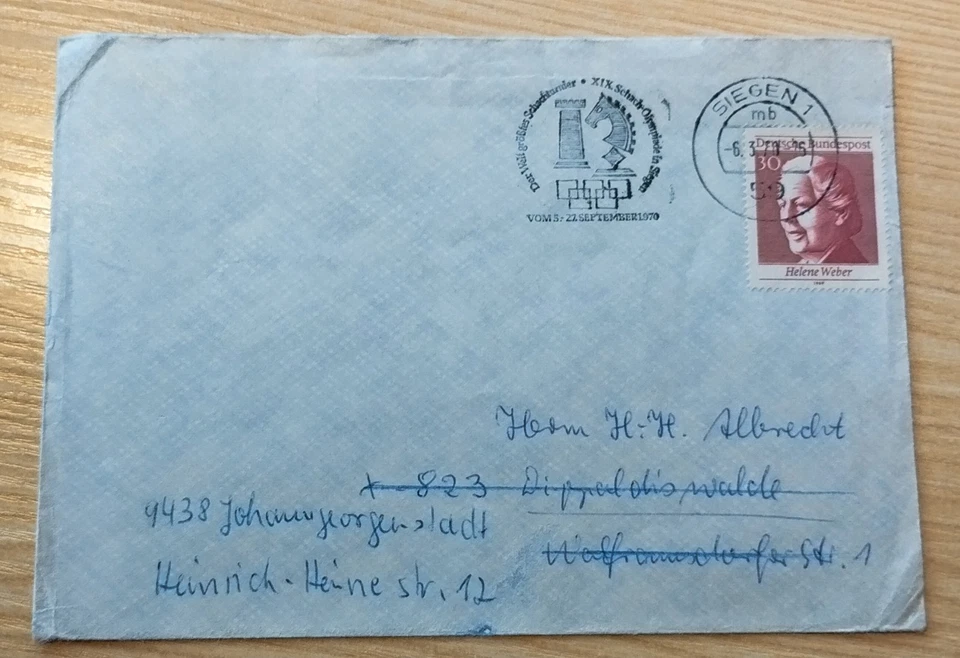 Der Welt größtes Schachturnier • XIX. Schach-Olympiade in Siegen
VOM 5.-27. SEPTEMBER 1970
SIEGEN 1
mb
-6.3.70-15
59
Deutsche Bundespost
30
Helene Weber
1969
Herrn H.-H. Albrecht
x 823 Dippoldiswalde
Wolframsdorfer Str. 1
9438 Johanngeorgenstadt
Heinrich-Heine str. 12